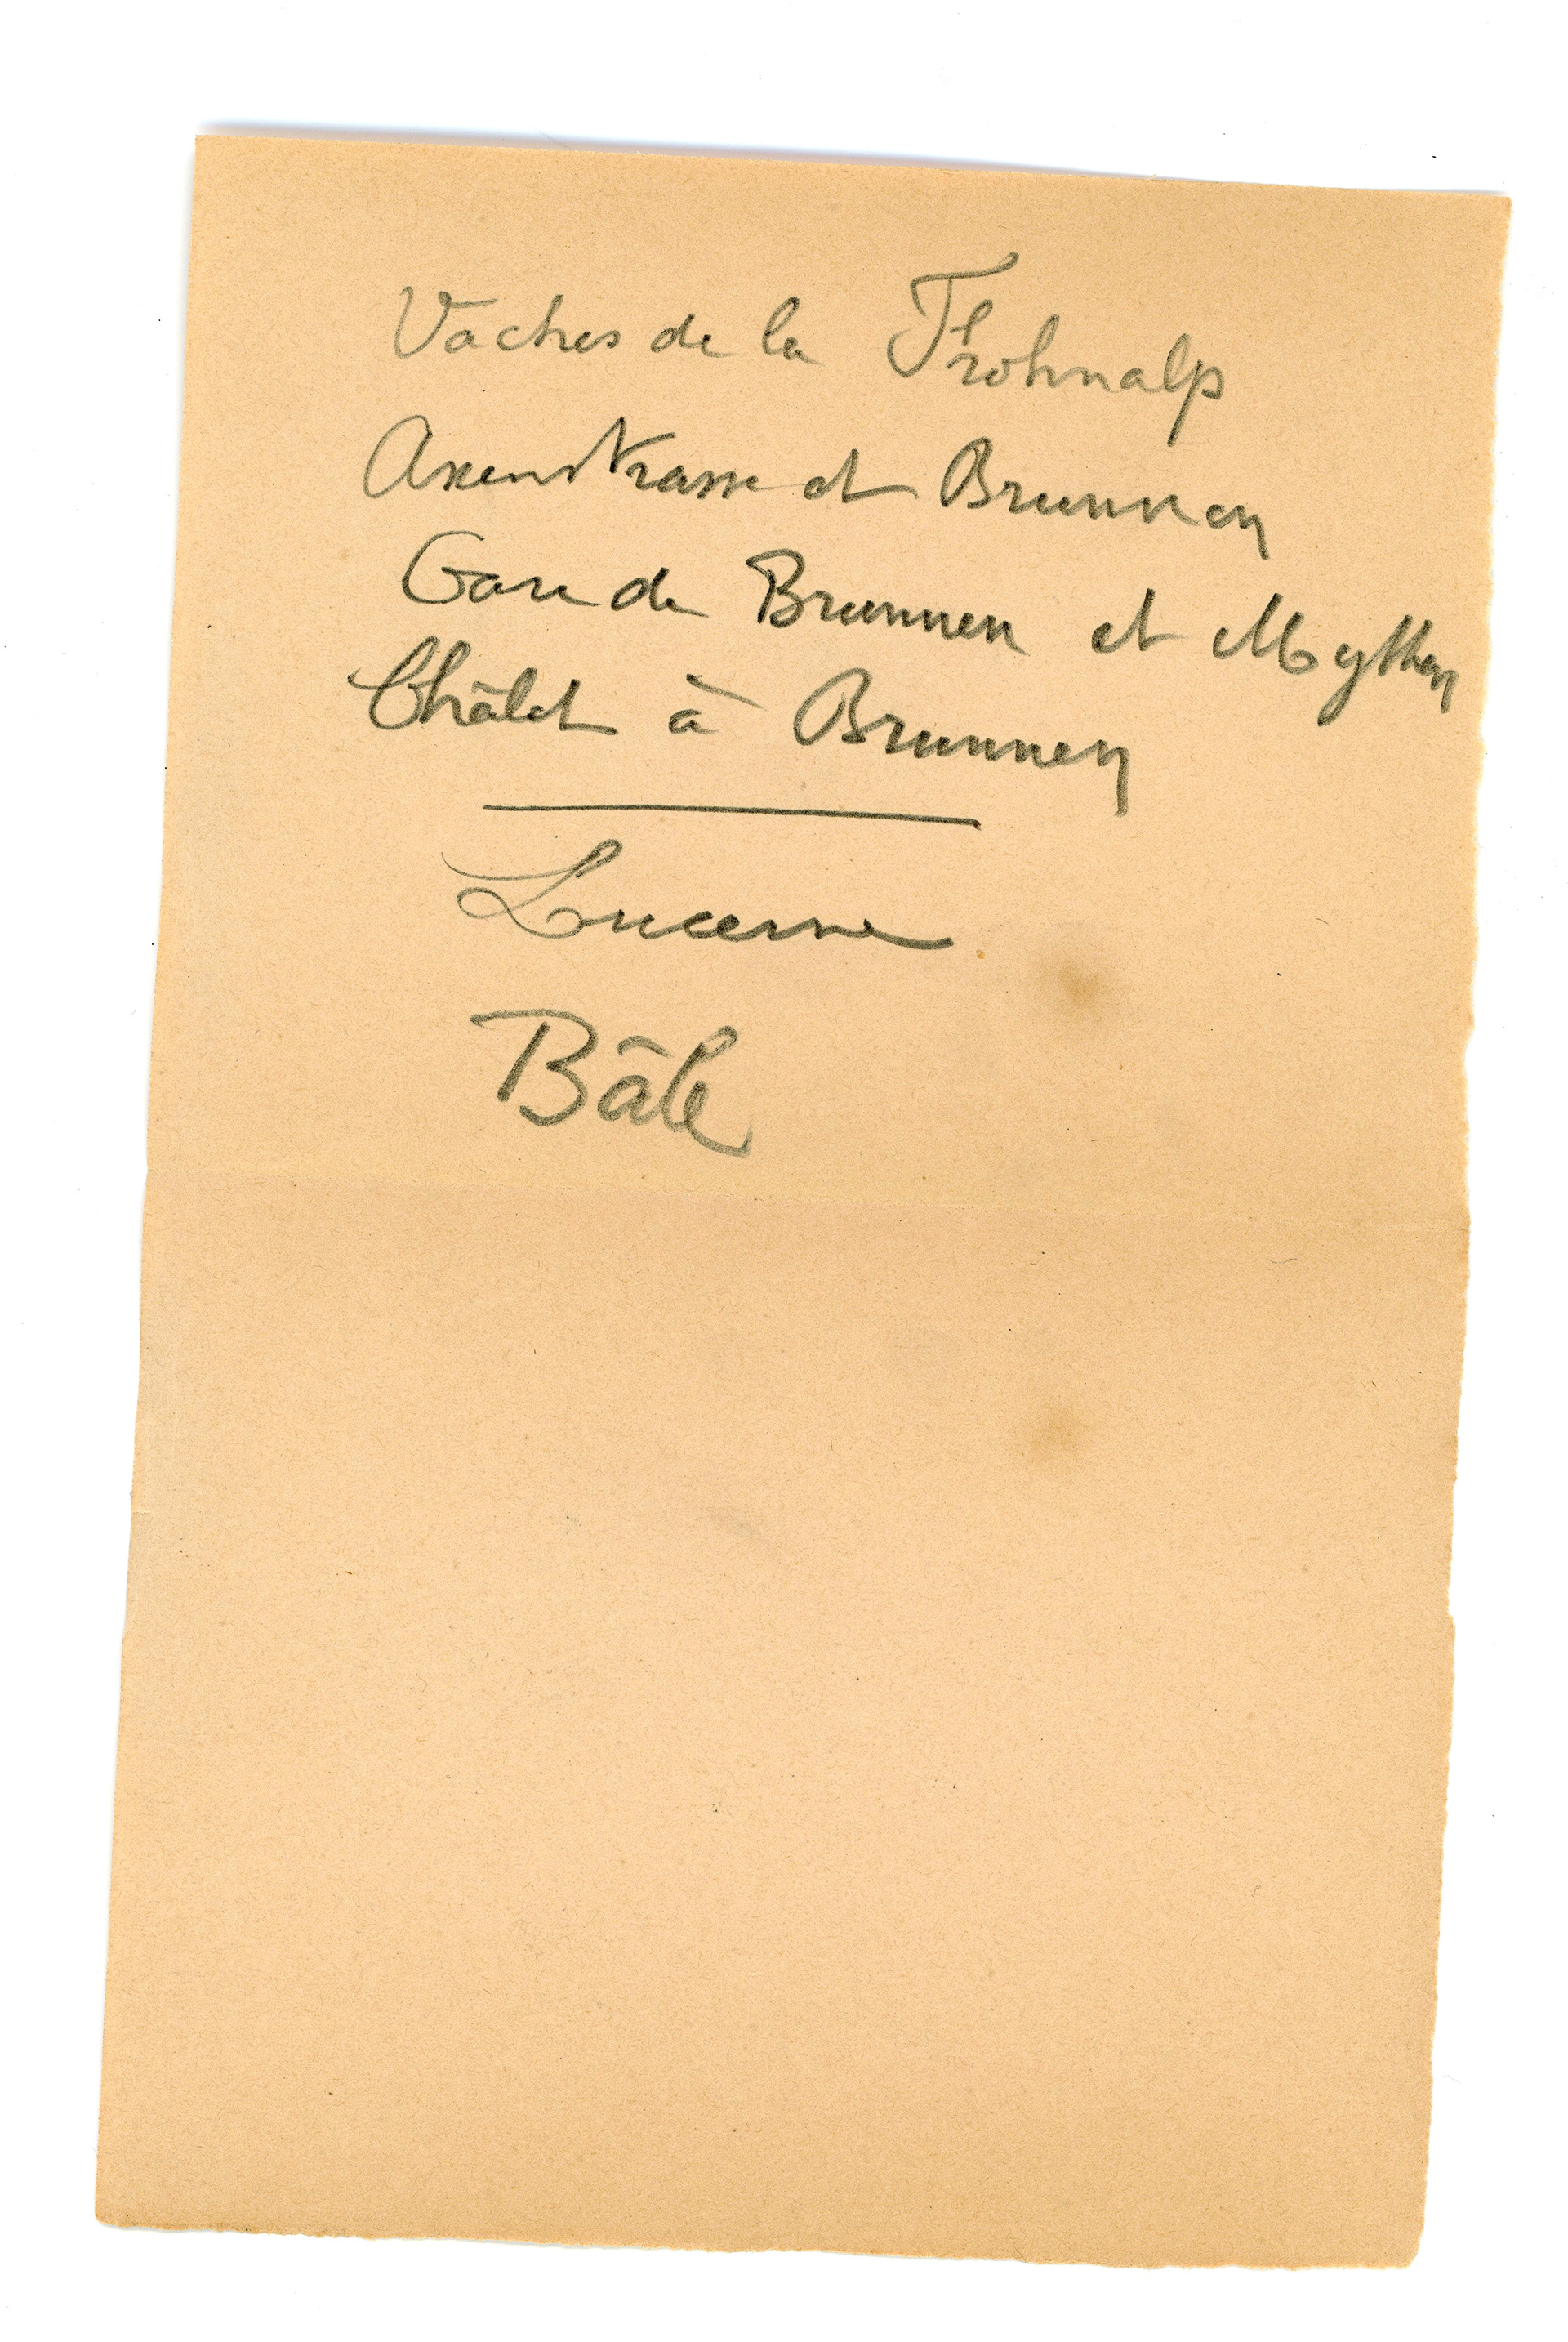 Vaches de la Frohnalp
Axenstrasse et Brunnen
Gare de Brunnen et Mythen
Châlet à Brunnen
Lucerne
Bâle